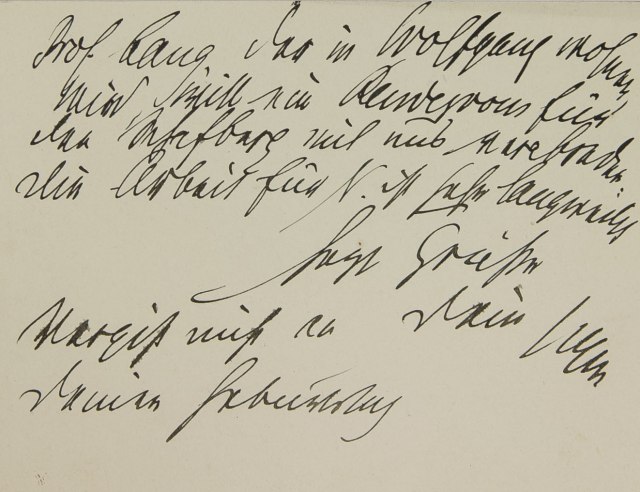 Prof. Lang der in Wolfgang wohnen
wird, will ein Rendezvous für
den Schafberg mit uns verabreden
die Arbeit für N. ist sehr langweilig
Herzl Grüße
Vergiß nicht an Dein
Deinen Geburtstag